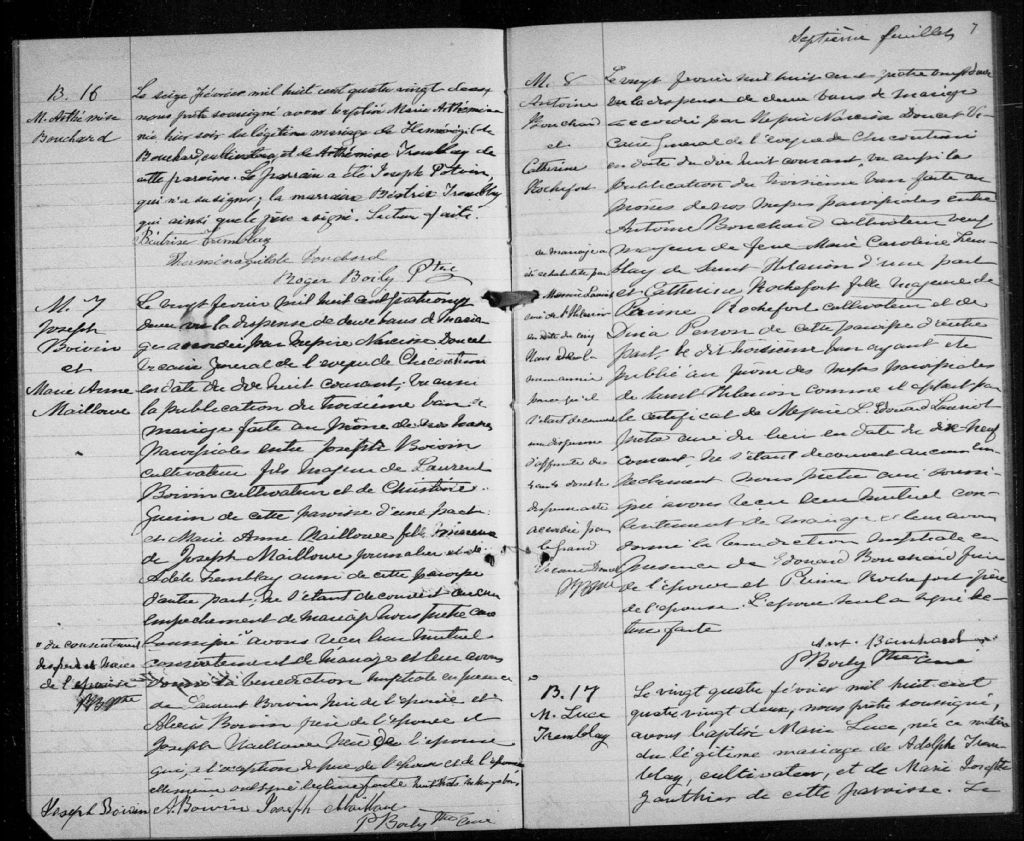 B. 16
M. Arthémise
Bouchard
Le seize février mil huit cent quatre vingt deux
nous prêtre soussigné avons baptisé Marie Arthémise
née hier soir du légitime mariage de Herménégilde
Bouchard cultivateur et de Arthémise Tremblay de
cette paroisse. Le parrain a été Joseph Potvin,
qui n'a su signer; la marraine Béatrix Tremblay
qui ainsi que le père a signé. Lecture faite.
Béatrise Tremblay
Herménégilde Bouchard
Roger Boily Ptre
M. 7
Joseph
Boivin
et
Marie Anne
Mailloux
Le vingt février mil huit cent quatre vingt
deux vu la dispense de deux bans de maria
ge accordée par Messire Narcisse Doucet
Vicaire General de l'eveque de Chicoutimi
en date du dix huit courant; vu aussi
la publication du troisième ban de
mariage faite au prône de nos messes
Paroissiales entre Joseph Boivin
cultivateur fils majeur de Laurent
Boivin cultivateur et de Christine
Guerin de cette paroisse d'une part;
et Marie Anne Mailloux fille mineure
de Joseph Mailloux journalier et de
Adele Tremblay aussi de cette paroisse
d'autre part; ne s'étant decouvert aucun
empechement de mariage nous prêtre curé
soussigné avons reçu leur mutuel
consentement de mariage et leur avons
donné la benediction nuptiale en presence
de Laurent Boivin père de l'epoux et
Alexis Boivin frère de l'epoux et
Joseph Mailloux père de l'epouse
qui, a l'exception du père de l'epoux et de l'epouse
ont signé lecture faite
" du consentement
des père et mère
de l'epouse
Joseph Boivin A. Boivin Joseph Mailloux
R Boily Ptre Curé
Septième feuillet 7
M. 8
Antoine
Bouchard
et
Catherine
Rochefort
Le vingt fevrier mil huit cent quatre vingt deux
vu la dispense de deux bans de mariage
accordée par Messire Narcisse Doucet Vi-
caire General de l'eveque de Chicoutimi
en date du dix huit courant, vu aussi la
publication du troisième ban faite au
prônes de nos messes paroissiales entre
Antoine Bouchard cultivateur veuf
majeur de feue Marie Caroline Trem
blay de Saint Hilarion d'une part
et Catherine Rochefort fille majeure de
Pierre Rochefort cultivateur et de
Dina Perron de cette paroisse d'autre
part; le dit troisième ban ayant été
publié au prone des messes paroissiales
de Saint Hilarion comme il appert par
le certificat de Messire L. Edouard Lauriot
prêtre curé du lieu en date du dix neuf
courant. Ne s'étant decouvert aucun em-
pechement nous prêtre curé soussi-
gné avons reçu leur mutuel con-
sentement de mariage et leur avons
donné la benediction nuptiale en
presence de Edouard Bouchard frère
de l'epoux et Pierre Rochefort père
de l'epouse. L'epoux seul a signé lec-
ture faite
de mariage a
été rehabilité par
curé de St Hilarion
en date du cinq
Mars de la
meme année
parce qu'il
s'était decouvert
une dispense
d'affinité du
accordée par
le Grand
Vicaire Doucet
Ant. Bouchard
R Boily Ptre Curé
B. 17
M. Luce
Tremblay
Le vingt quatre février mil huit cent
quatre vingt deux, nous prêtre soussigné,
avons baptisé Marie Luce, née ce matin
du légitime mariage de Adolphe Trem-
blay, cultivateur, et de Marie Josephte
Gauthier de cette paroisse. Le